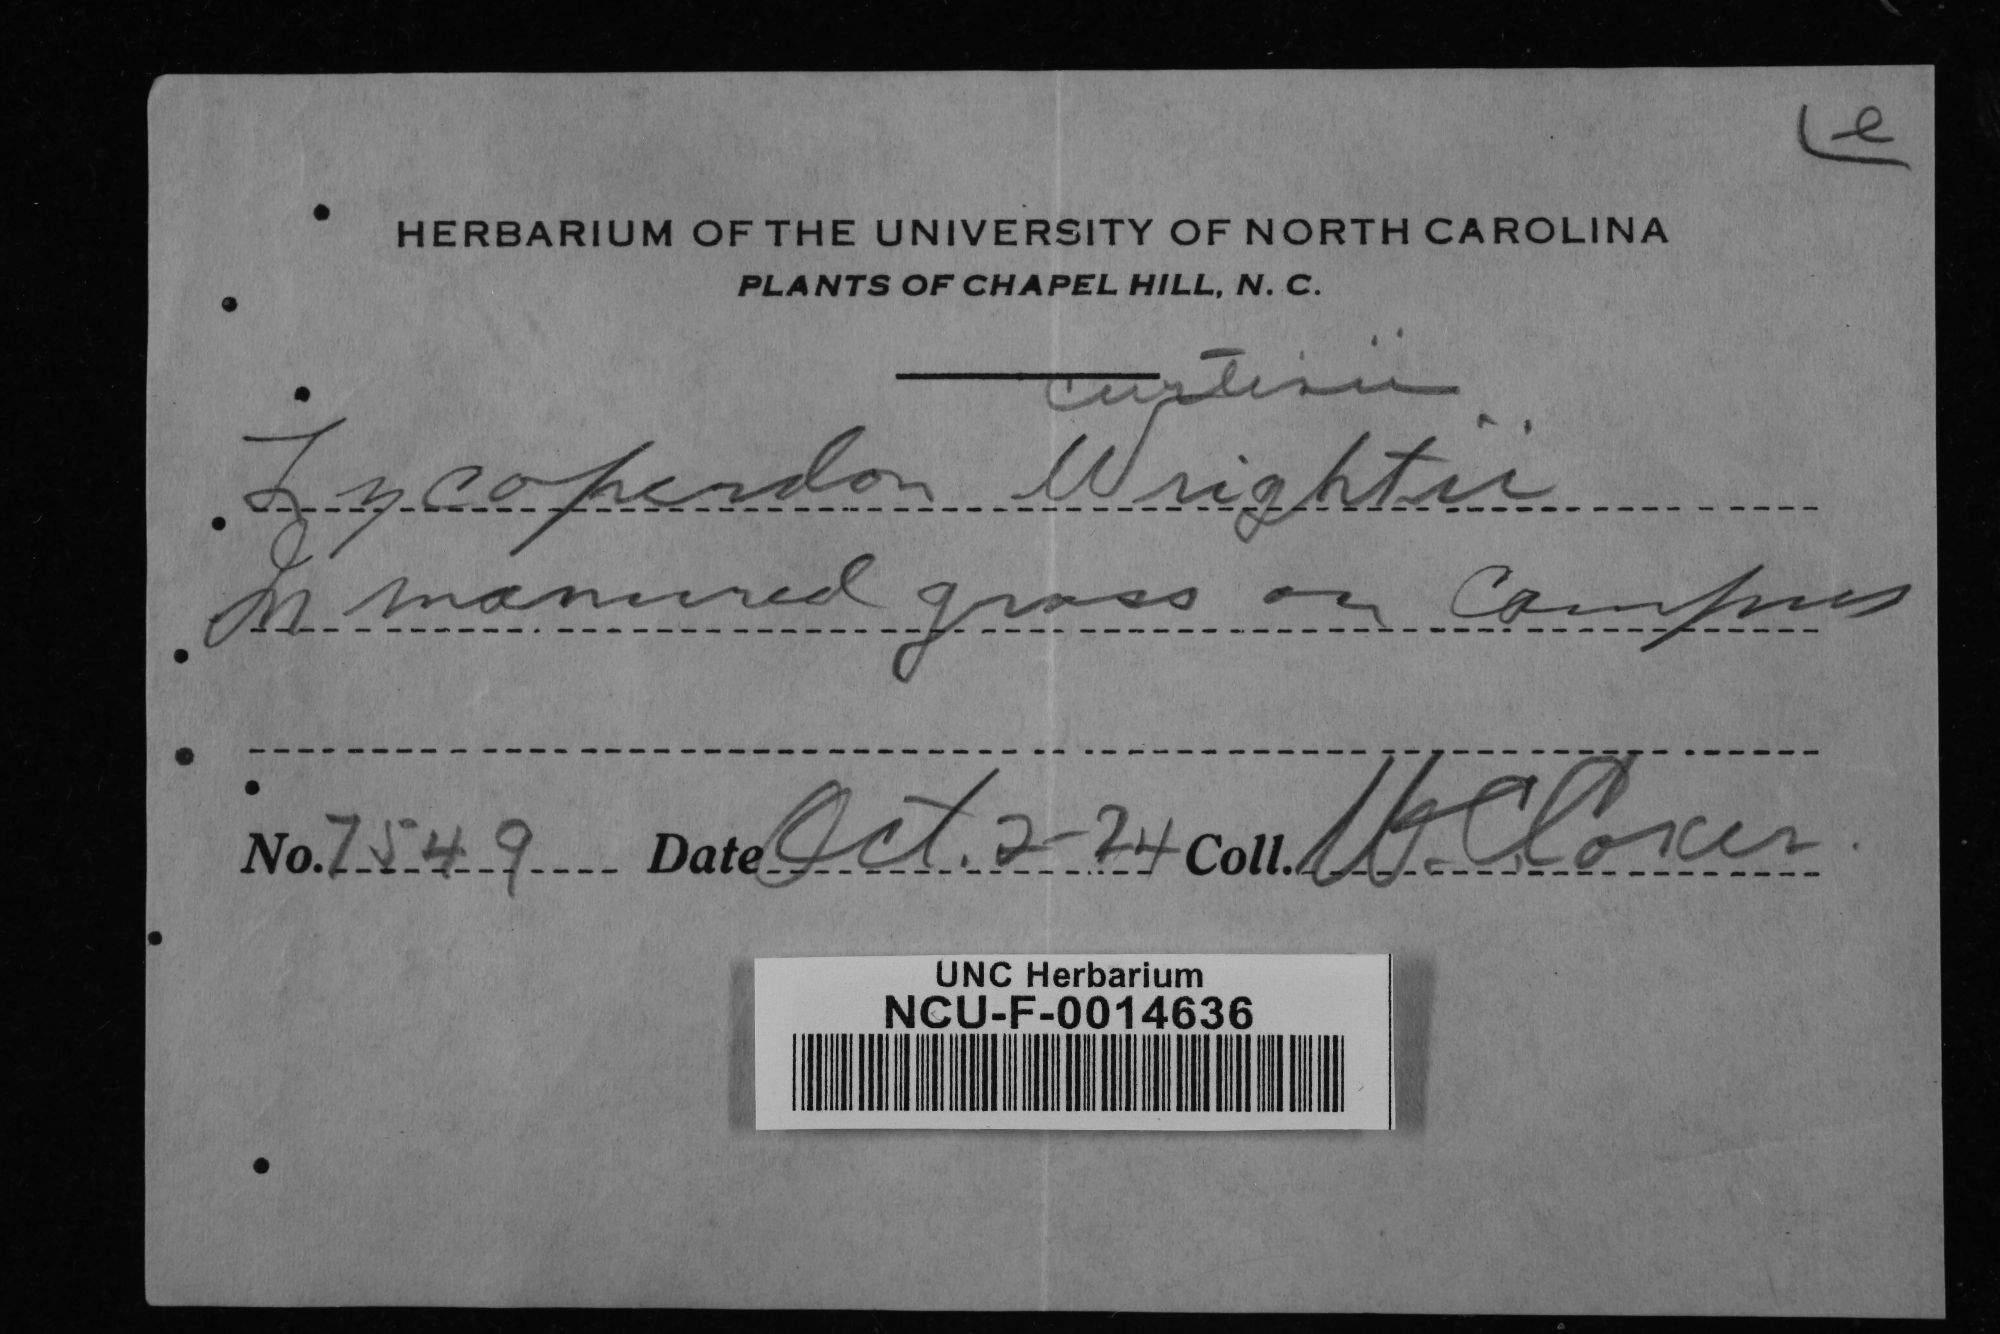 e
HERBARIUM OF THE UNIVERSITY OF NORTH CAROLINA
PLANTS OF CHAPEL HILL, N. C.
curtisii
Lycoperdon Wrightii
In manured grass on campus
No. 7549 Date Oct. 2-24 Coll. W. C. Coker.
UNC Herbarium
NCU-F-0014636